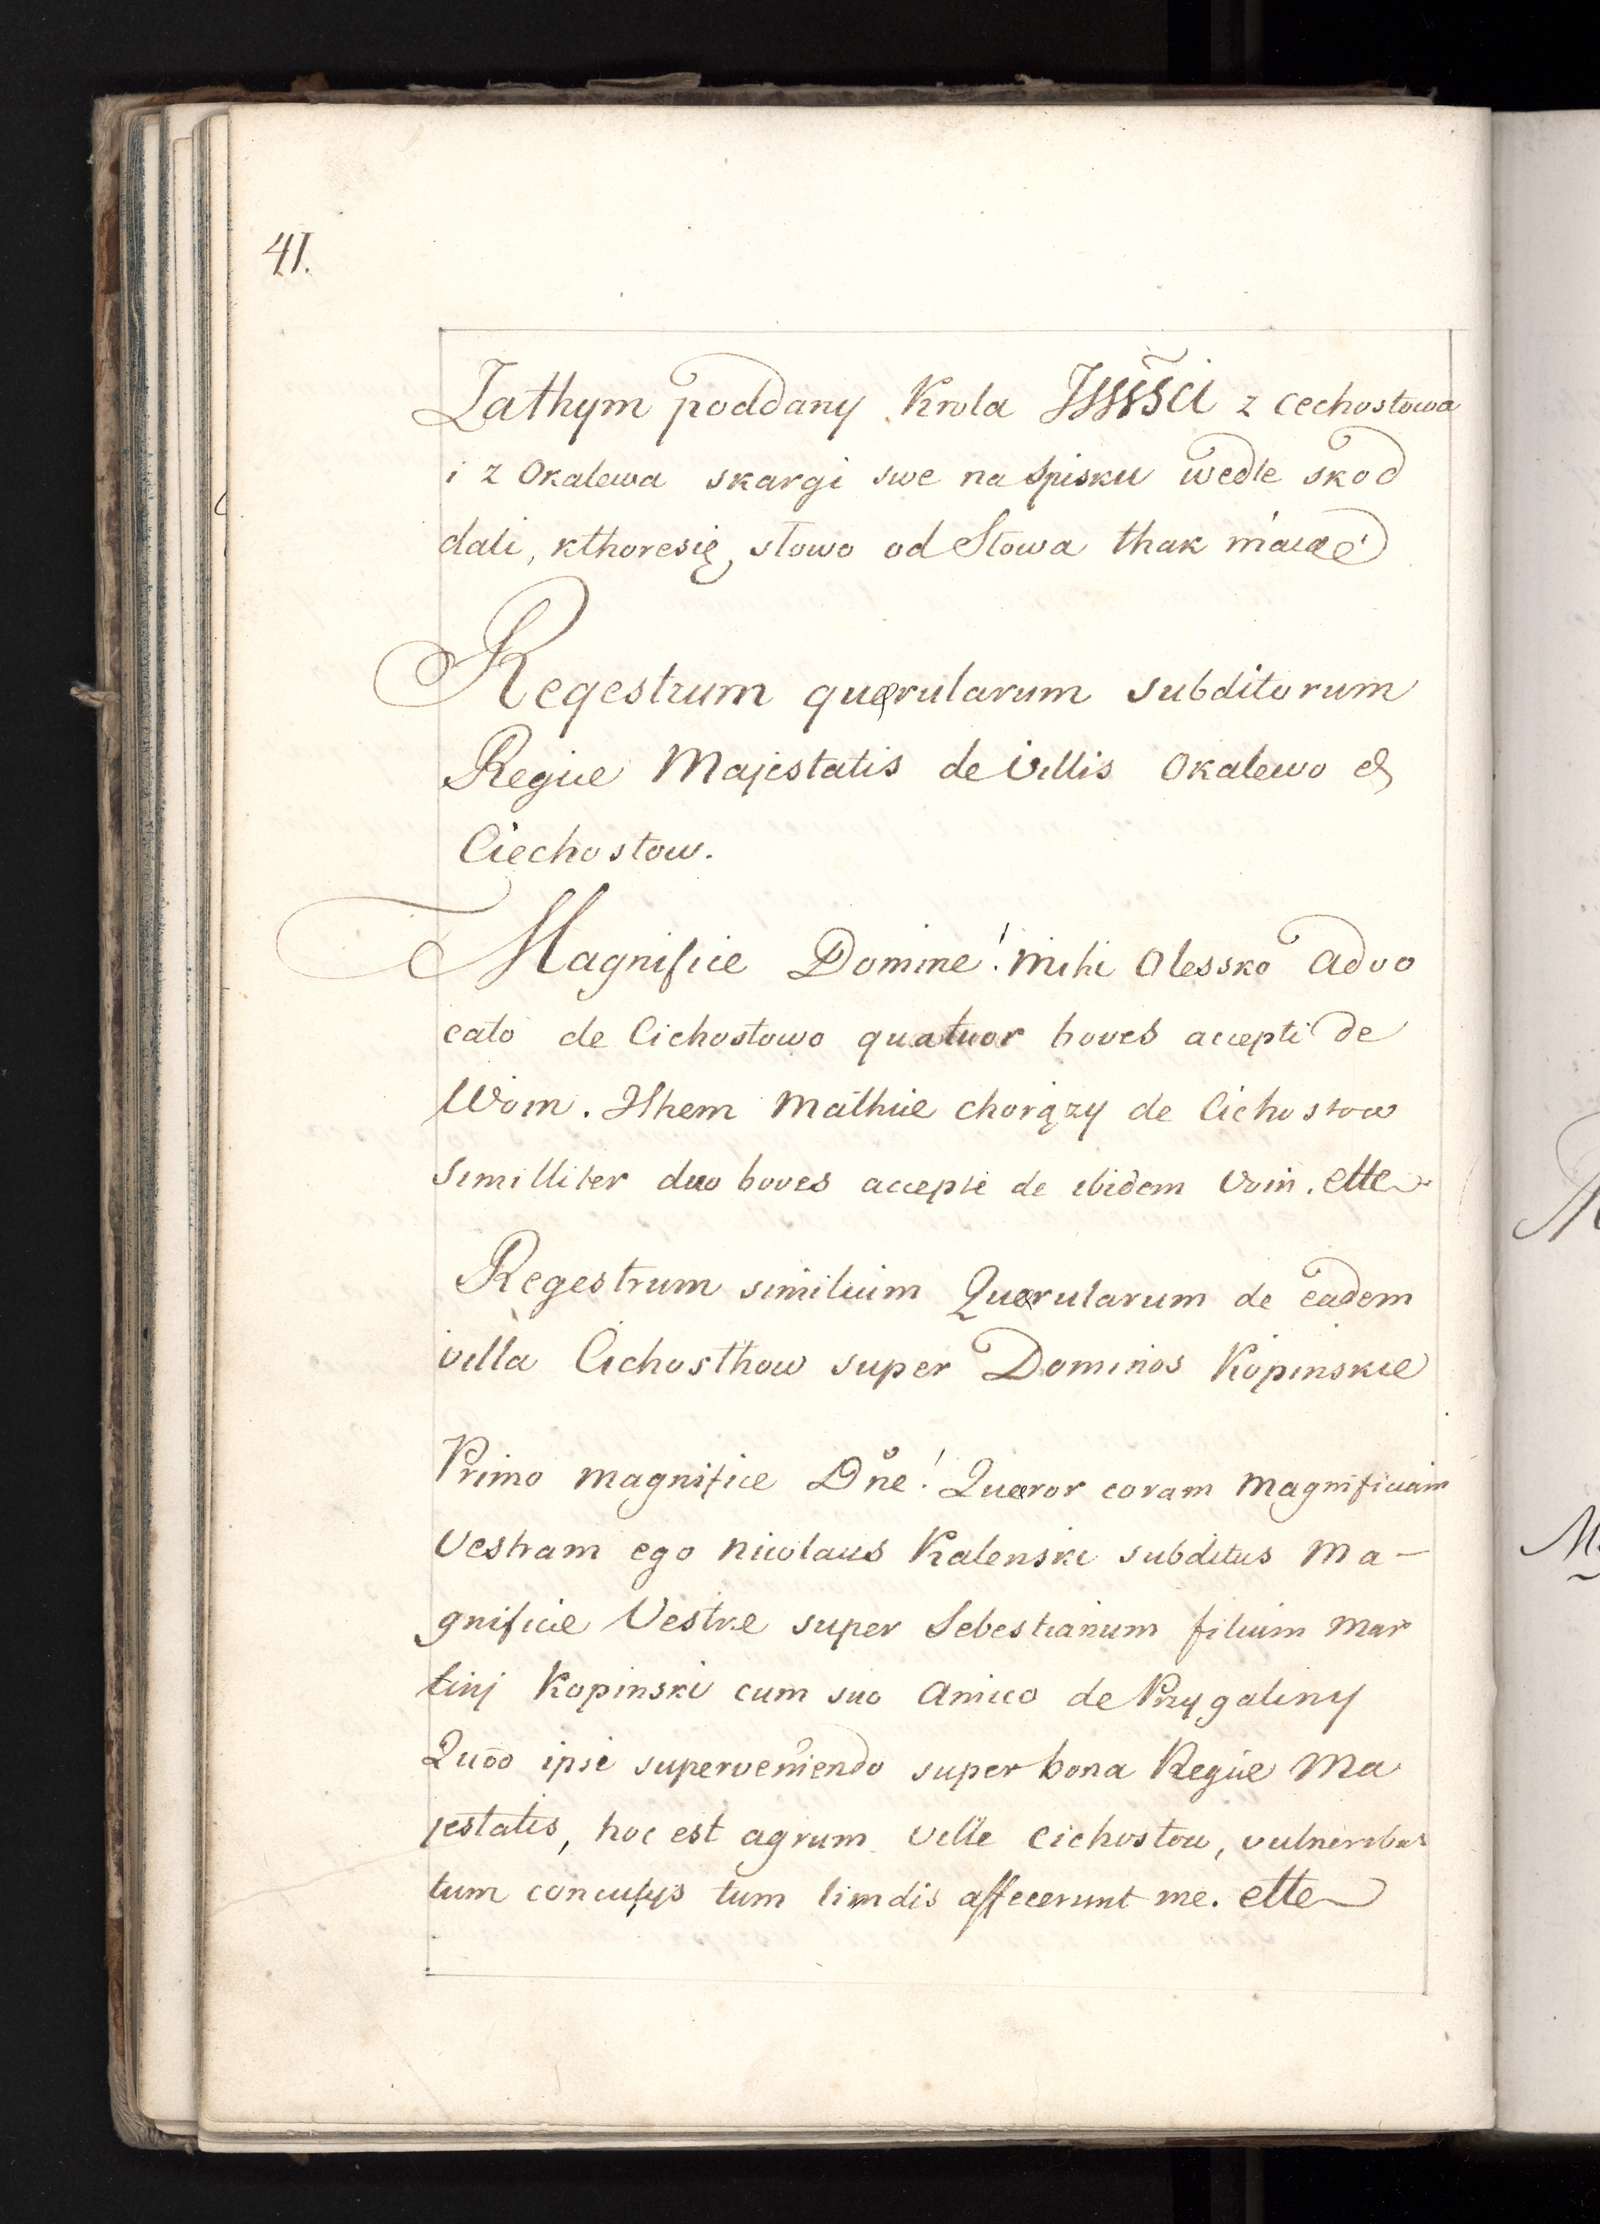 41.
Zathym poddany Krola z Cechostowa
i z Okalewa skargi swe na spisku wedle skod
dali, kthoresię słowo od Słowa thak
Regestrum quærularum subditorum
Regiæ Majestatis de villis Okalewo &
Ciechostow.
Magnifice Domine! mihi Olessko advo
cato de Cichostowo quatuor boves accepti de
Woin. Ithem Mathiæ chorąży de Cichostow
similliter duo boves accepti de ibidem Voin. ettc
Regestrum similium Quærularum de eadem
villa Cichosthow super Dominos Kopinskie
Primo magnifice Dñe! Quæror coram magnificiam
Vestram ego Nicolaus Kalenski subditus Ma-
gnificiæ Vestræ super Sebestianum filium Mar
tinj Kopinski cum suo Amico de Przygaliny
Quōo ipsi superveniendo super bona Regiæ Ma
jestatis, hoc est agrum villæ Cichostow, vulneribus
tum tum affecerunt me. ettc